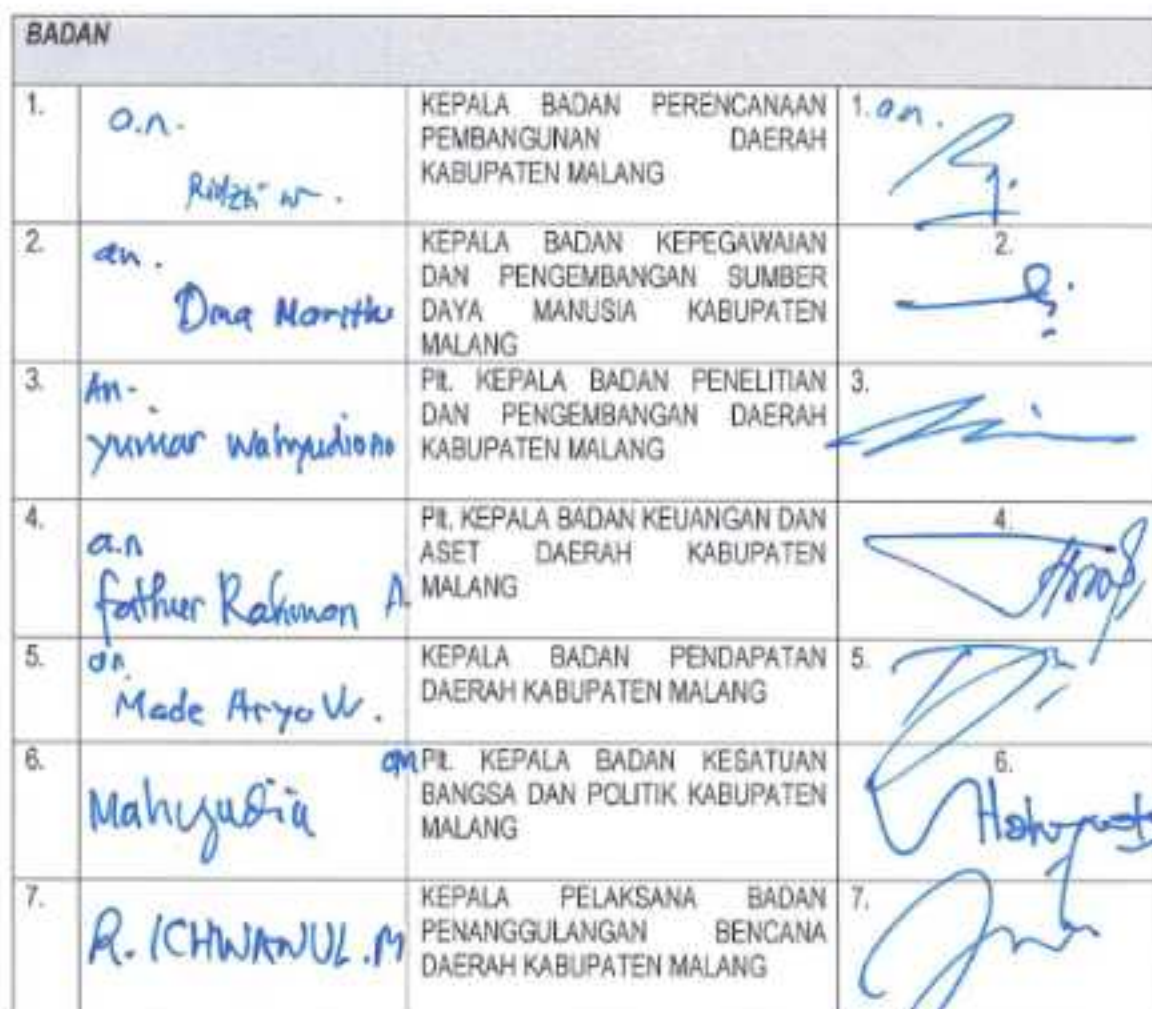 BADAN
1.
a.n.
KEPALA BADAN PERENCANAAN
PEMBANGUNAN DAERAH
KABUPATEN MALANG
1. a.n.
2.
an.
KEPALA BADAN KEPEGAWAIAN
DAN PENGEMBANGAN SUMBER
DAYA MANUSIA KABUPATEN
MALANG
2.
3.
An-
Yunuar Wahyudiono
Plt. KEPALA BADAN PENELITIAN
DAN PENGEMBANGAN DAERAH
KABUPATEN MALANG
3.
4.
a.n
fathur Rahman A.
Plt. KEPALA BADAN KEUANGAN DAN
ASET DAERAH KABUPATEN
MALANG
4.
5.
an
Made Aryo W.
KEPALA BADAN PENDAPATAN
DAERAH KABUPATEN MALANG
5.
6.
an
Plt. KEPALA BADAN KESATUAN
BANGSA DAN POLITIK KABUPATEN
MALANG
6.
7.
R. ICHWANUL.M
KEPALA PELAKSANA BADAN
PENANGGULANGAN BENCANA
DAERAH KABUPATEN MALANG
7.